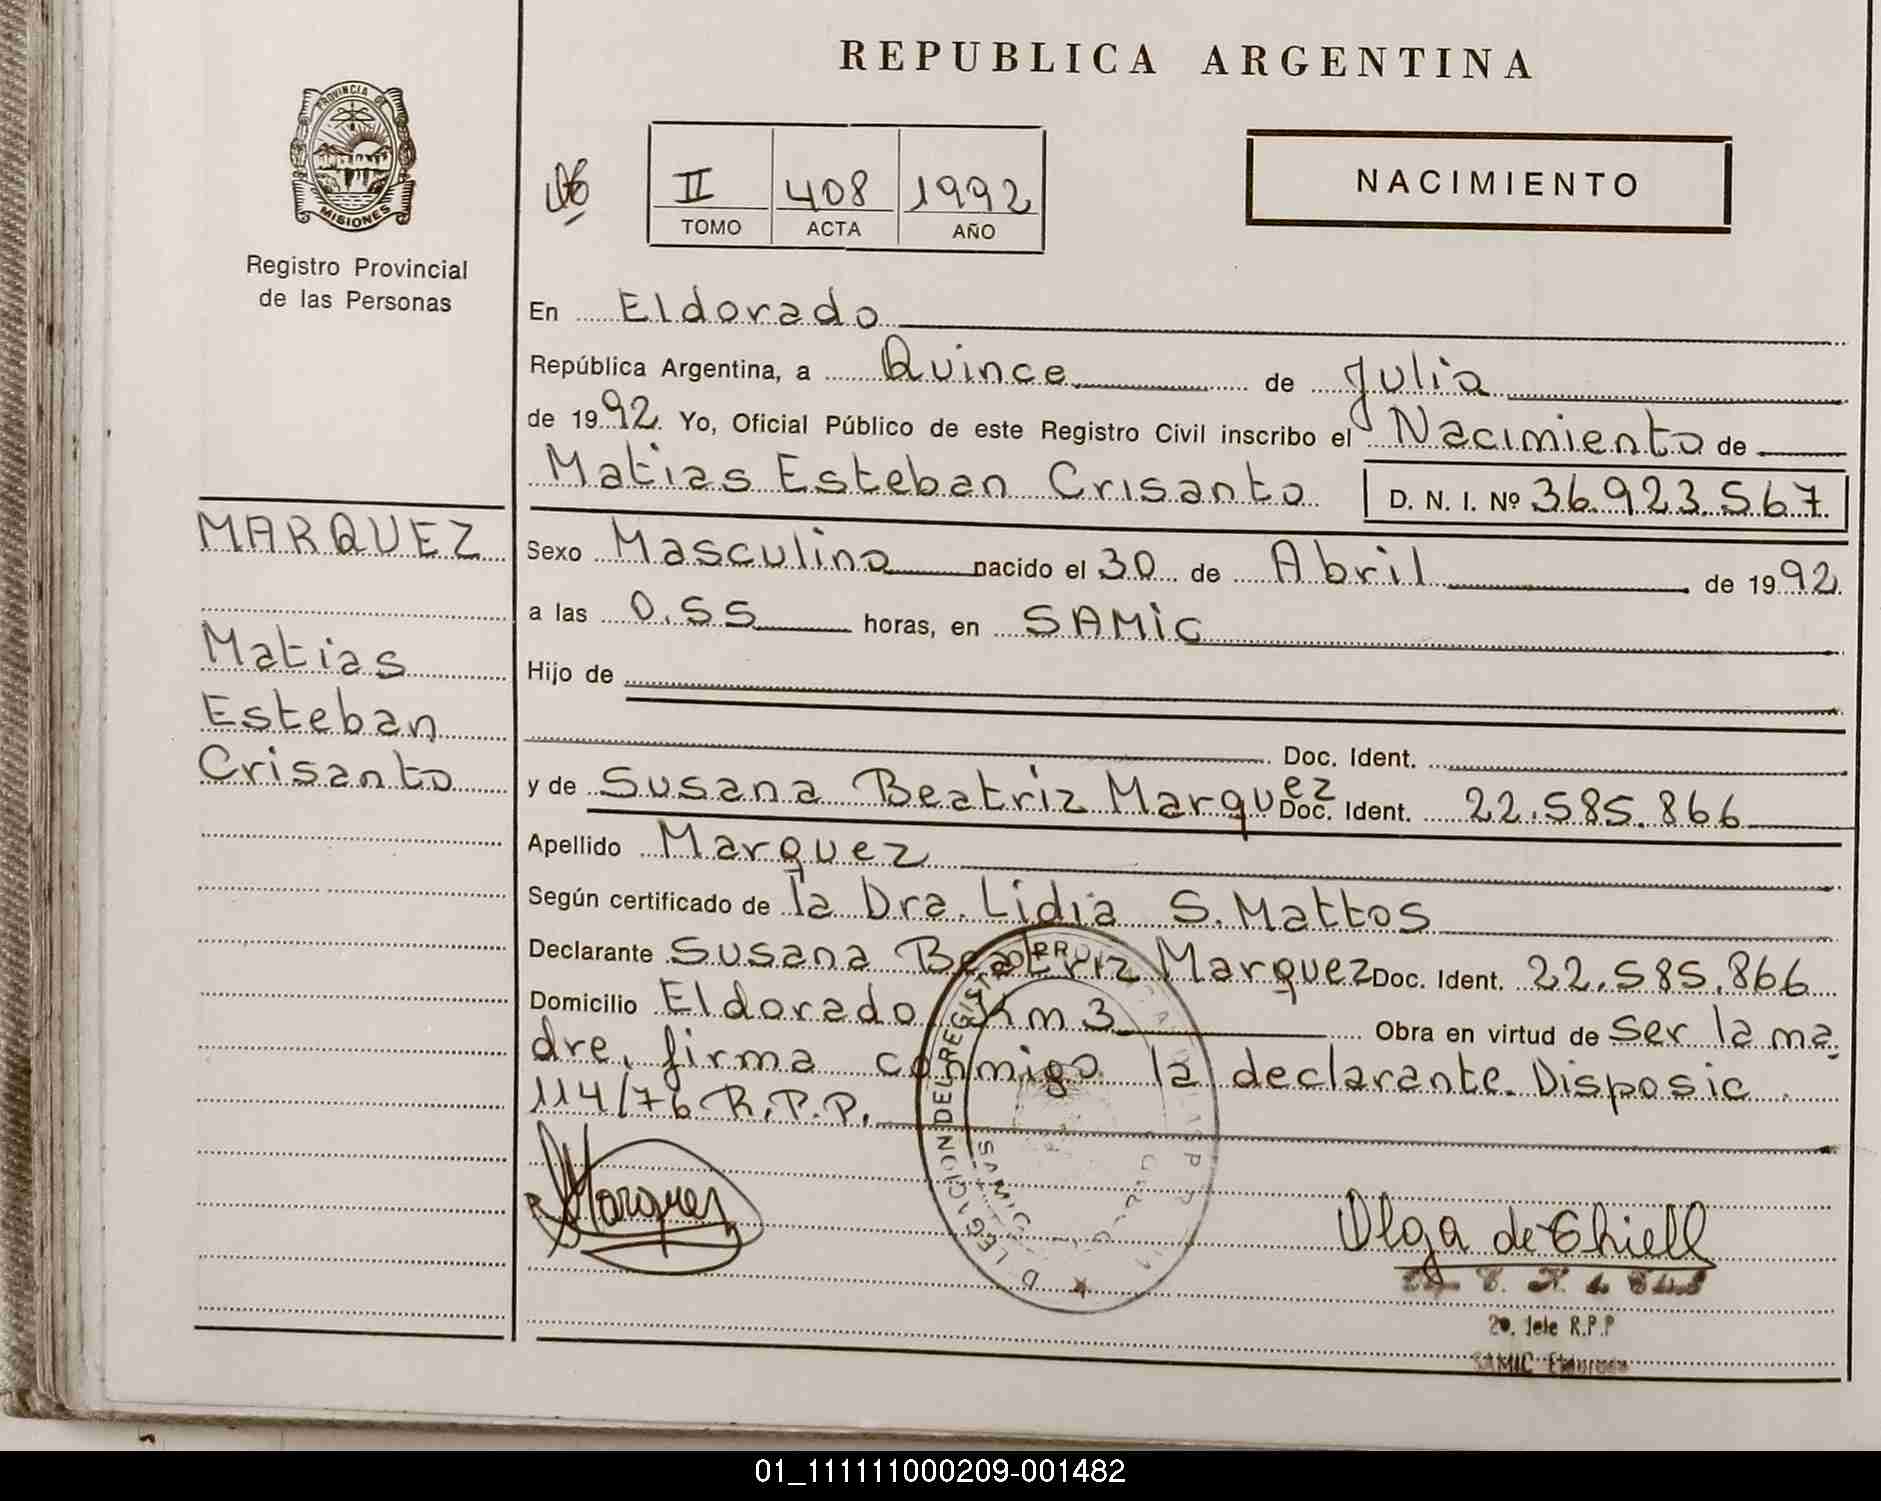 REPUBLICA ARGENTINA
PROVINCIA DE
MISIONES
Registro Provincial
de las Personas
II 408 1992
TOMO ACTA AÑO
NACIMIENTO
En Eldorado
República Argentina, a Quince de Julio
de 1992. Yo, Oficial Público de este Registro Civil inscribo el Nacimiento de
Matias Esteban Crisanto D. N. I. Nº 36.923.567
MARQUEZ
Matias
Esteban
Crisanto
Sexo Masculino nacido el 30 de Abril de 1992.
a las 0.55 horas, en SAMiC
Hijo de
Doc. Ident.
y de Susana Beatriz Marquez Doc. Ident. 22.585.866
Apellido Marquez
Según certificado de la Dra. Lidia S. Mattos
Declarante Susana Beatriz Marquez Doc. Ident. 22.585.866
Domicilio Eldorado Km 3 Obra en virtud de Ser la ma
dre, firma conmigo la declarante. Disposic
114/76 R.P.P.
Marquez
Olga de Chiell
2º. Jefe R.P.P
SAMIC
01_111111000209-001482